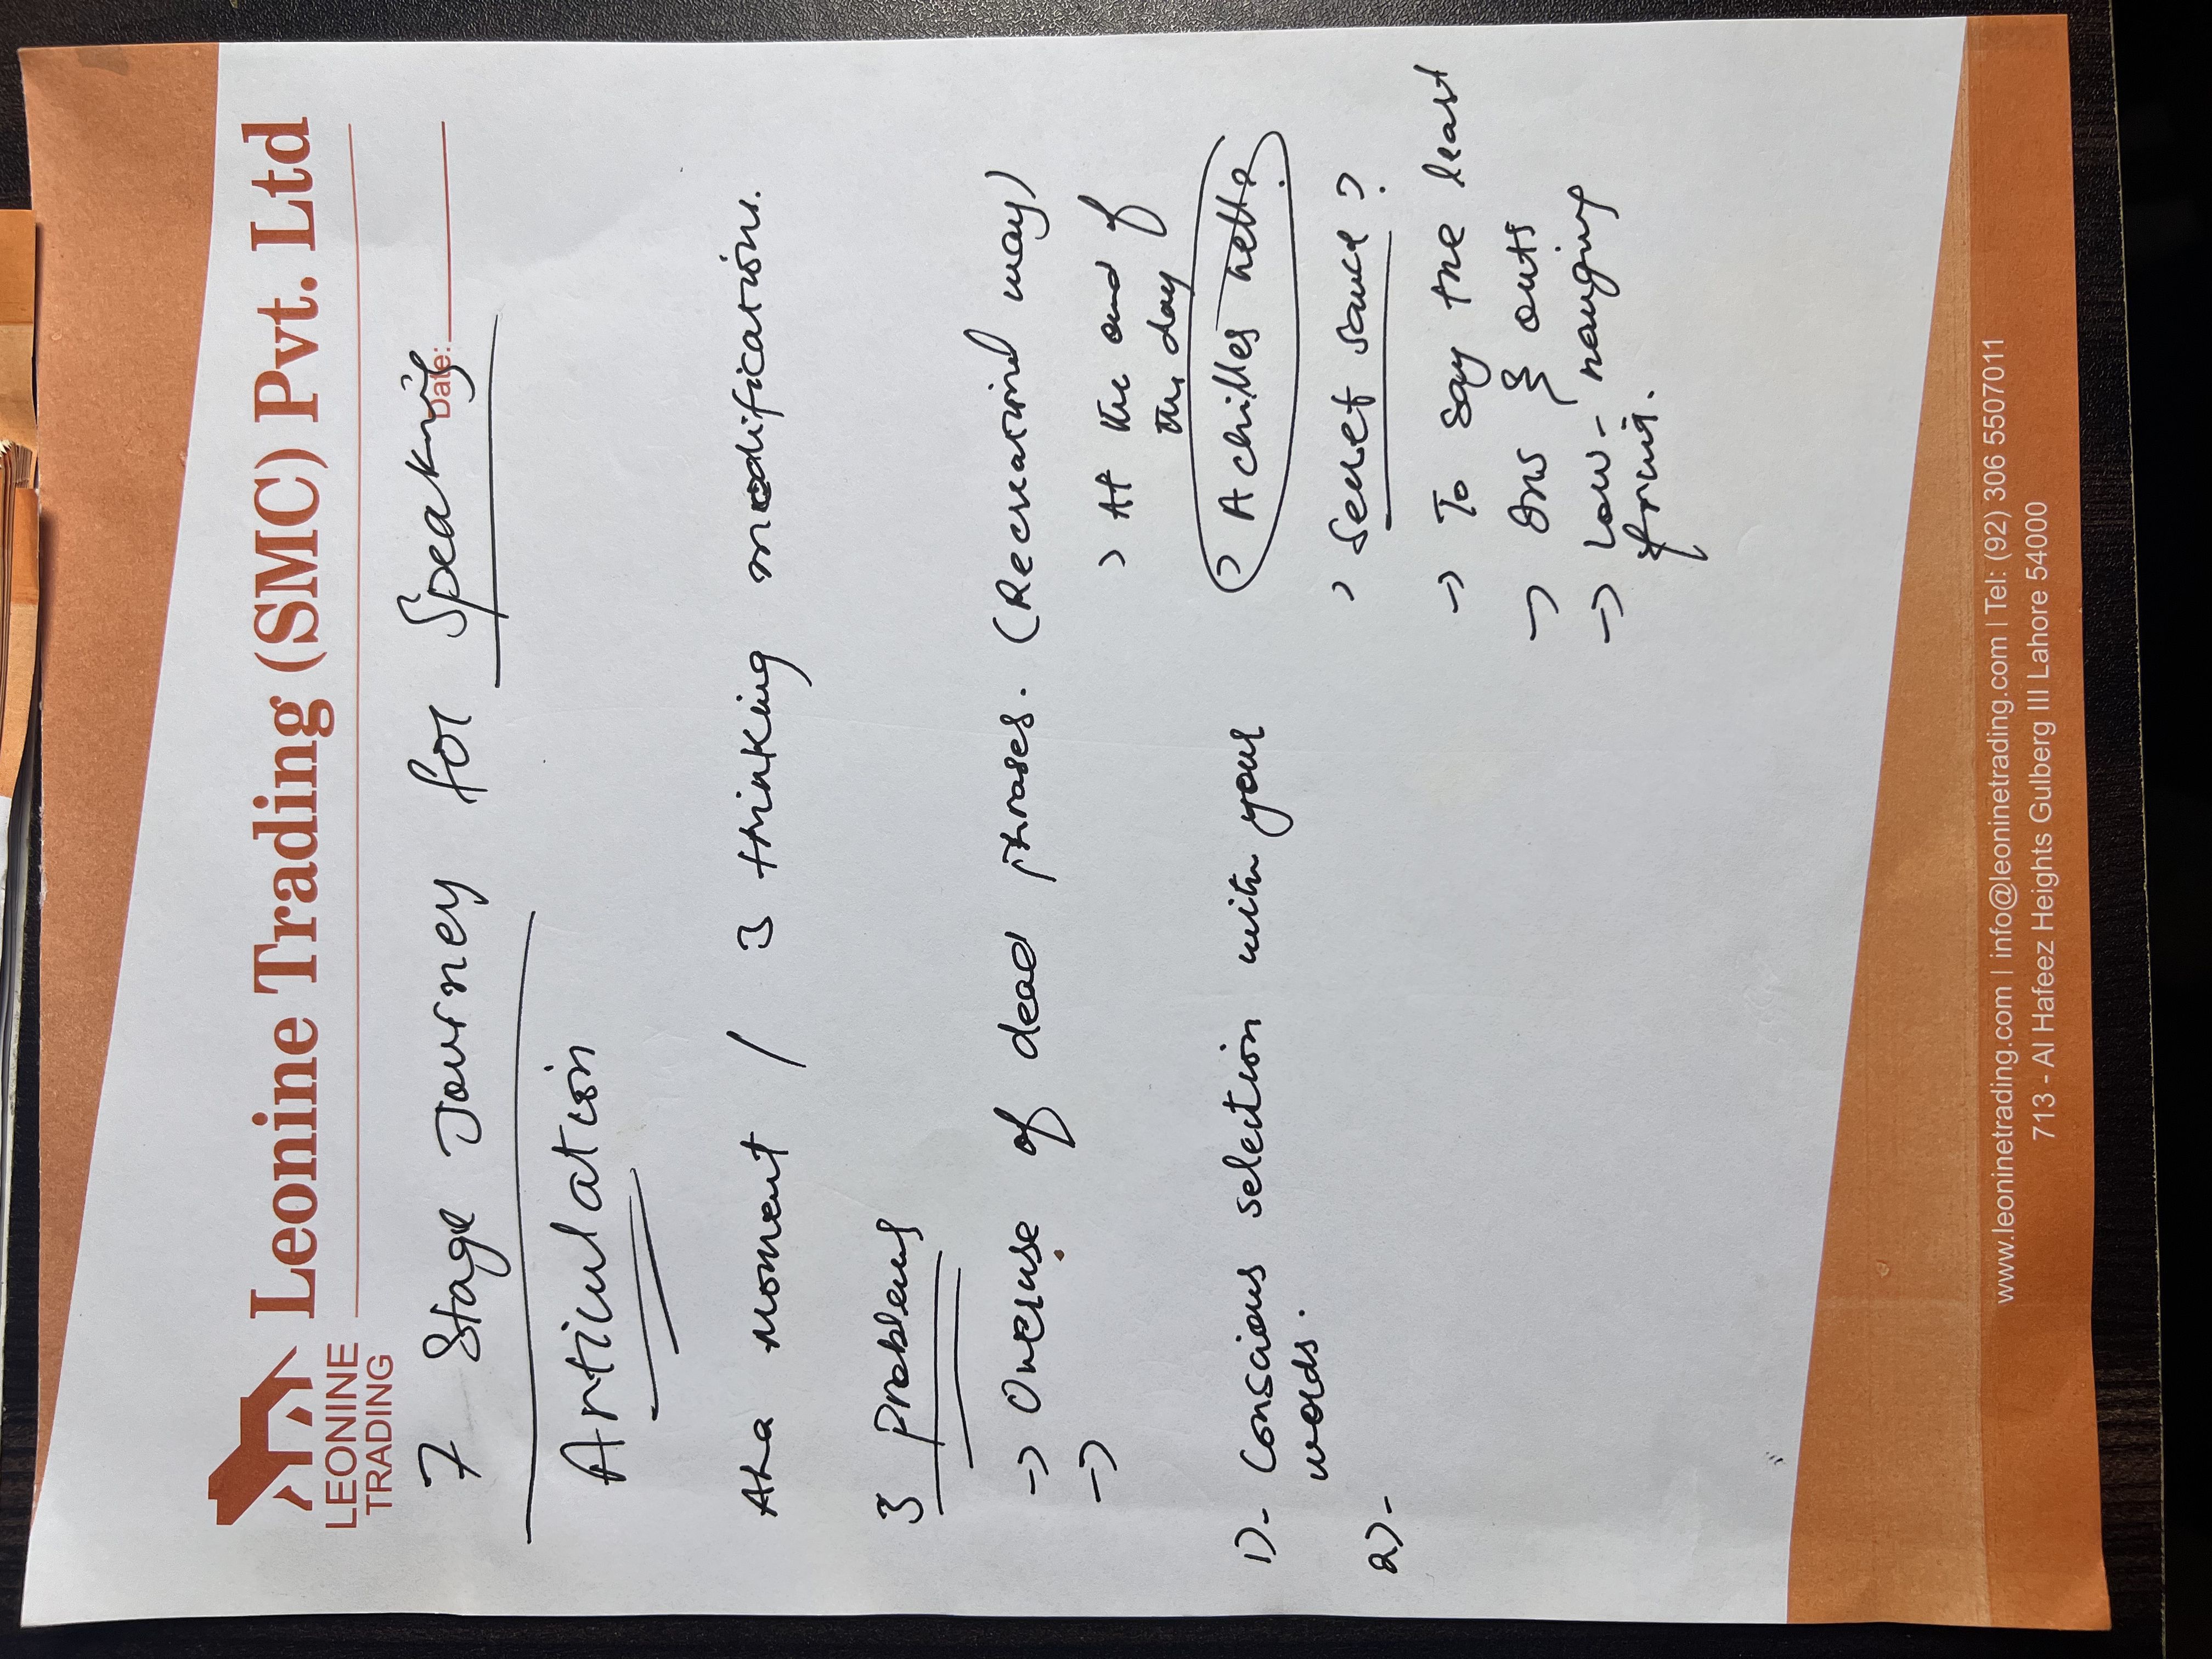 LEONINE
TRADING
Leonine Trading (SMC) Pvt. Ltd
Date:
7 Stage Journey for Speaking
Articulation
Aha Moment / 3 thinking modifications.
3 Problems
→ Overuse of dead phrases. (Recreational way)
→
> At the end of
the day
> Achilles
> Secret sauce?
→ To say the least
→ Ins & outs
→ Low-hanging
fruit.
1)- Conscious selection with your
words.
2)-
www.leoninetrading.com | info@leoninetrading.com | Tel: (92) 306 5507011
713 - Al Hafeez Heights Gulberg III Lahore 54000